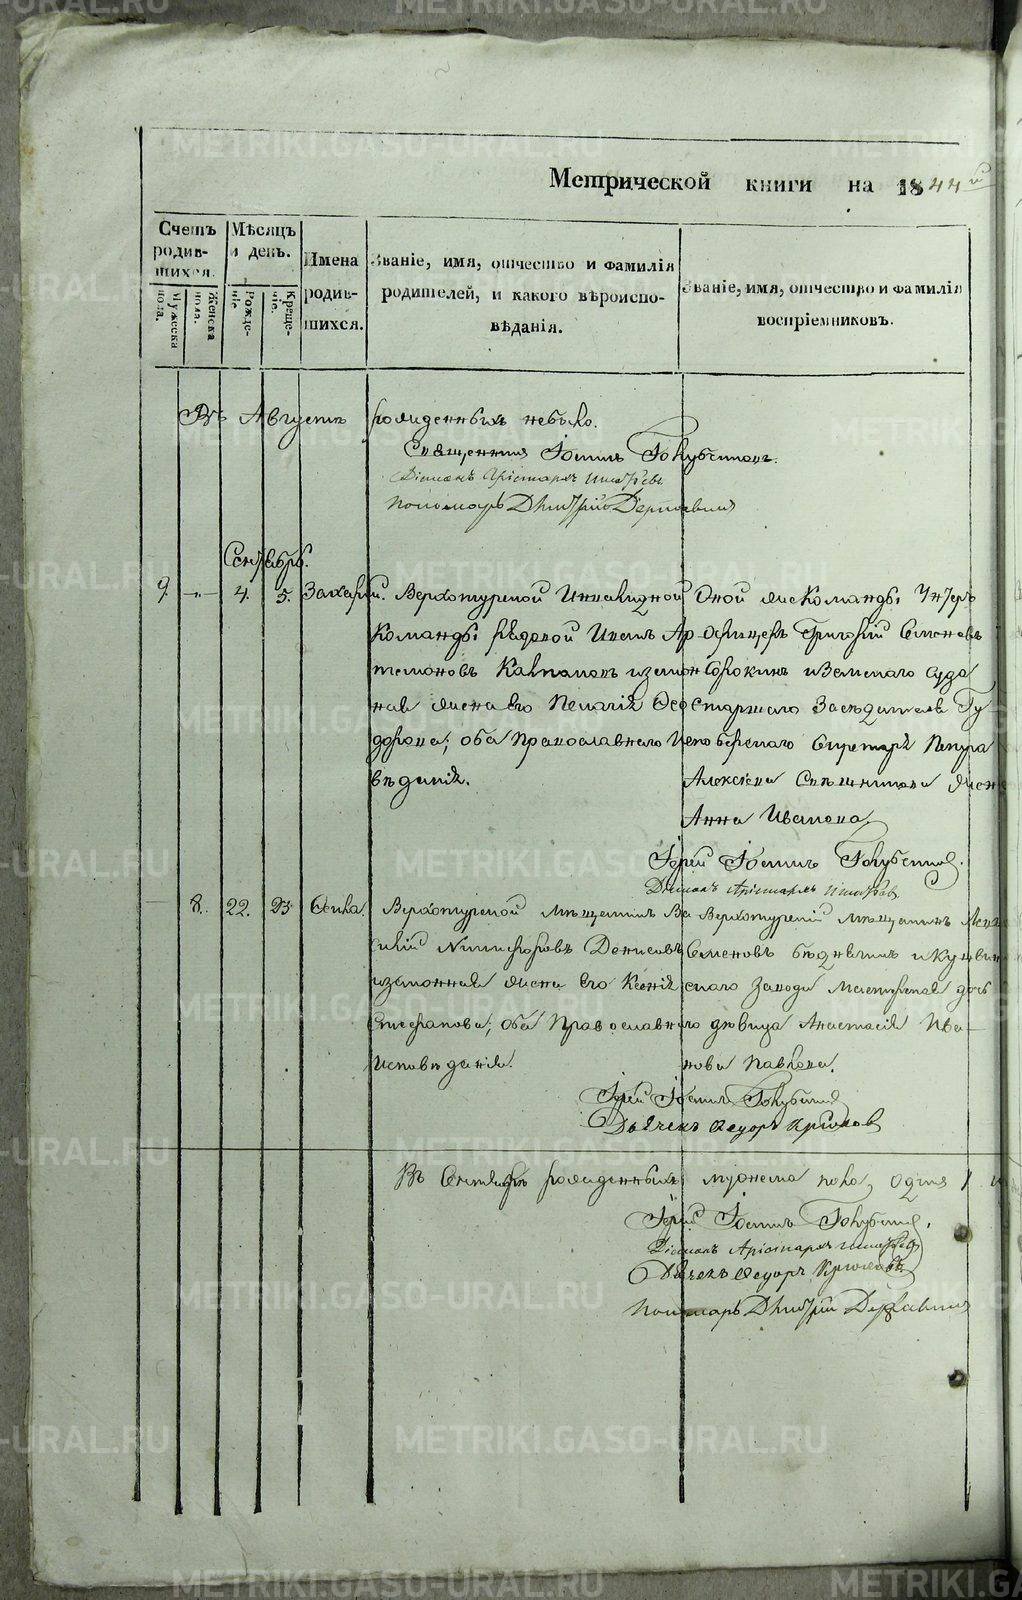 Метрической книги на 1844й
Счетъ родив-шихся.
Мужеска пола.
Женска пола.
Мѣсяцъ и день.
Рожде-ніе
Креще-ніе.
Имена родив-шихся.
Званіе, имя, отчество и фамилія
родителей, и какого вѣроиспо-
вѣданія.
Званіе, имя, отчество и фамилія
воспріемниковъ.
Въ Августѣ рожденныхъ небыло.
Священникъ Іоаннъ
Діаконъ Арістархъ
Пономарь Дмитрій Державинъ
Сентябрь.
9. -"- 4. 5. Захарій. Верхотурской Инвалидной
Команды рядовой Иванъ Ар-
темоновъ Калпаковъ изакон
ная жена его Пелагія Ѳео
дорова; оба православнаго Испо
вѣданія.
Оной же Команды Унтеръ
офицеръ Григорій Семеновъ
Сорокинъ и Земскаго Суда
Старшаго Засѣдателя Гу
бернскаго Секретаря Петра
Алексѣева жена
Анна Иванова.
Іерей Іоаннъ
Діаконъ Арістархъ
8. 22. 23 Ѳекла. Верхотурской мѣщанинъ Ва
силій Никифоровъ Денисовъ
изаконная жена его Ксенія
Стефанова; оба Православнаго
Исповѣданія.
Верхотурскій мѣщанинъ
Семеновъ и Кушвин
скаго завода Мастерская дочь
дѣвица Анастасія Ива-
нова Павлова.
Іерей Іоаннъ
Дьячекъ Ѳедоръ Крюковъ
Въ Сентябрѣ рожденныхъ мужеска пола, одинъ 1. и
Іерей Іоаннъ
Діаконъ Арістархъ
Дьячекъ Ѳедоръ Крюковъ
Пономарь Дмитрій Державинъ
METRIKI.GASO-URAL.RU